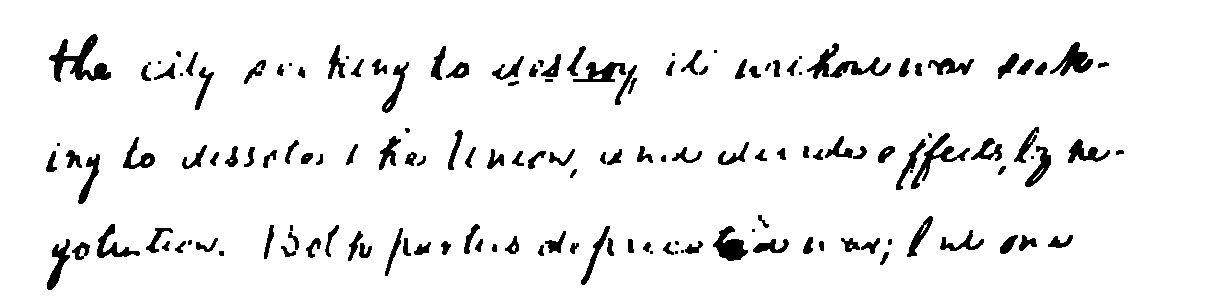 the city seeking to destroy it without war seek-
ing to dissolve the Union, and divide effects, by ne-
gotiation. Both parties deprecated war; but one